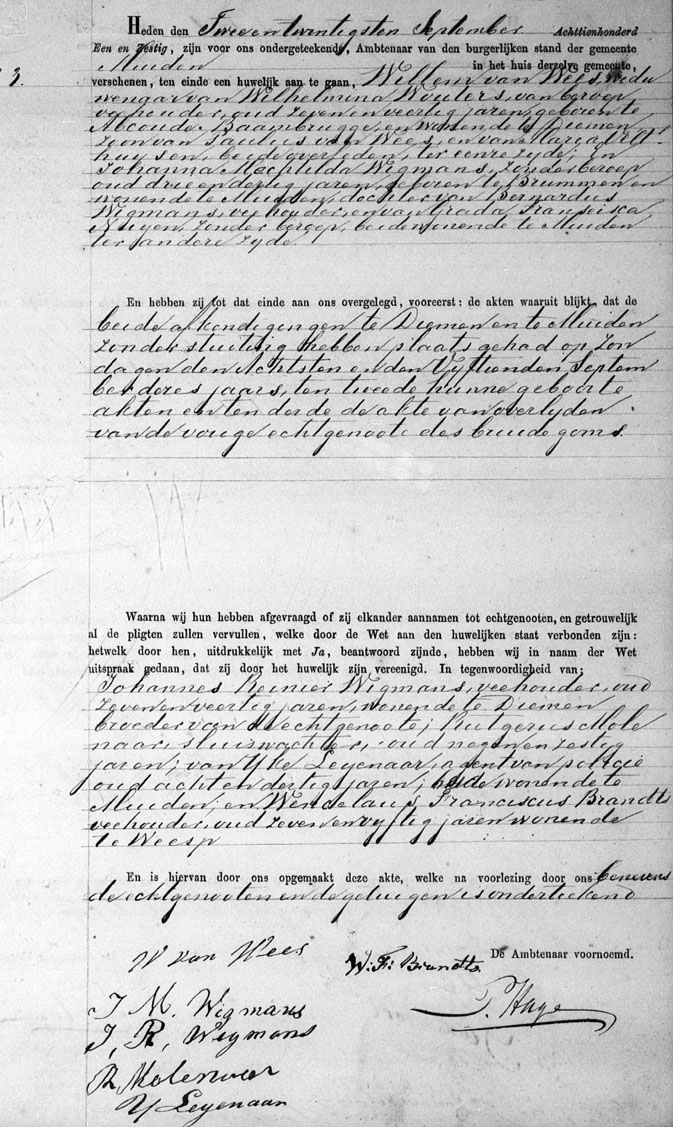 Heden den Tweeentwentigsten September Achttienhonderd
Een en zestig, zijn voor ons ondergeteekende, Ambtenaar van den burgerlijken stand der gemeente
Muiden in het huis derzelve gemeente,
3. verschenen, ten einde een huwelijk aan te gaan, Willem van Wees, wedu
wenaar van Wilhelmina Wouters, van beroep
veehouder, oud zeven en veertig jaren, geboren te
Abcoude-Baambrugge, en wonende te Diemen,
zoon van Paulus van Wees, en van Marga
huysen, beide overleden, ter eenre zyde; En
Johanna Mechtilda Wigmans, zonder beroep
oud drie en dertig jaren, geboren te Brummen en
wonende te Muiden, dochter van Bernardus
Wigmans, veehouder, en van Grada Fransisca
zonder beroep, beide wonende te Muiden
ter andere zyde.
En hebben zij tot dat einde aan ons overgelegd, vooreerst: de akten waaruit blijkt, dat de
beide afkondigingen te Diemen en te Muiden
zonder stuiting hebben plaats gehad op Zon
dagen den Achtsten en den Vyftienden Septem
ber dezes jaars, ten tweede hunne geboorte
akten en ten derde de akte van overlyden
van de vorige echtgenoote des bruidegoms.
Waarna wij hun hebben afgevraagd of zij elkander aannamen tot echtgenooten, en getrouwelijk
al de pligten zullen vervullen, welke door de Wet aan den huwelijken staat verbonden zijn:
hetwelk door hen, uitdrukkelijk met Ja, beantwoord zijnde, hebben wij in naam der Wet
uitspraak gedaan, dat zij door het huwelijk zijn vereenigd. In tegenwoordigheid van:
Johannes Reinier Wigmans, veehouder, oud
zeven en veertig jaren, wonende te Diemen
broeder van de echtgenoote; Rutgerus Mole
naar, sluiswachter, oud negen en zestig
jaren; van Yke Leyenaar, agent van policie
oud acht en dertig jaren; beide wonende te
Muiden; en Wencelaus Franciscus Brandts
veehouder, oud zeven en vyftig jaren wonende
te Weesp
En is hiervan door ons opgemaakt deze akte, welke na voorlezing door ons benevens
de echtgenooten en de getuigen is onderteekend
De Ambtenaar voornoemd.
W van Wees
W. F. Brandts.
P. Hage
J M. Wigmans
J, R, Wigmans
R, Molenaar
Y Leyenaar